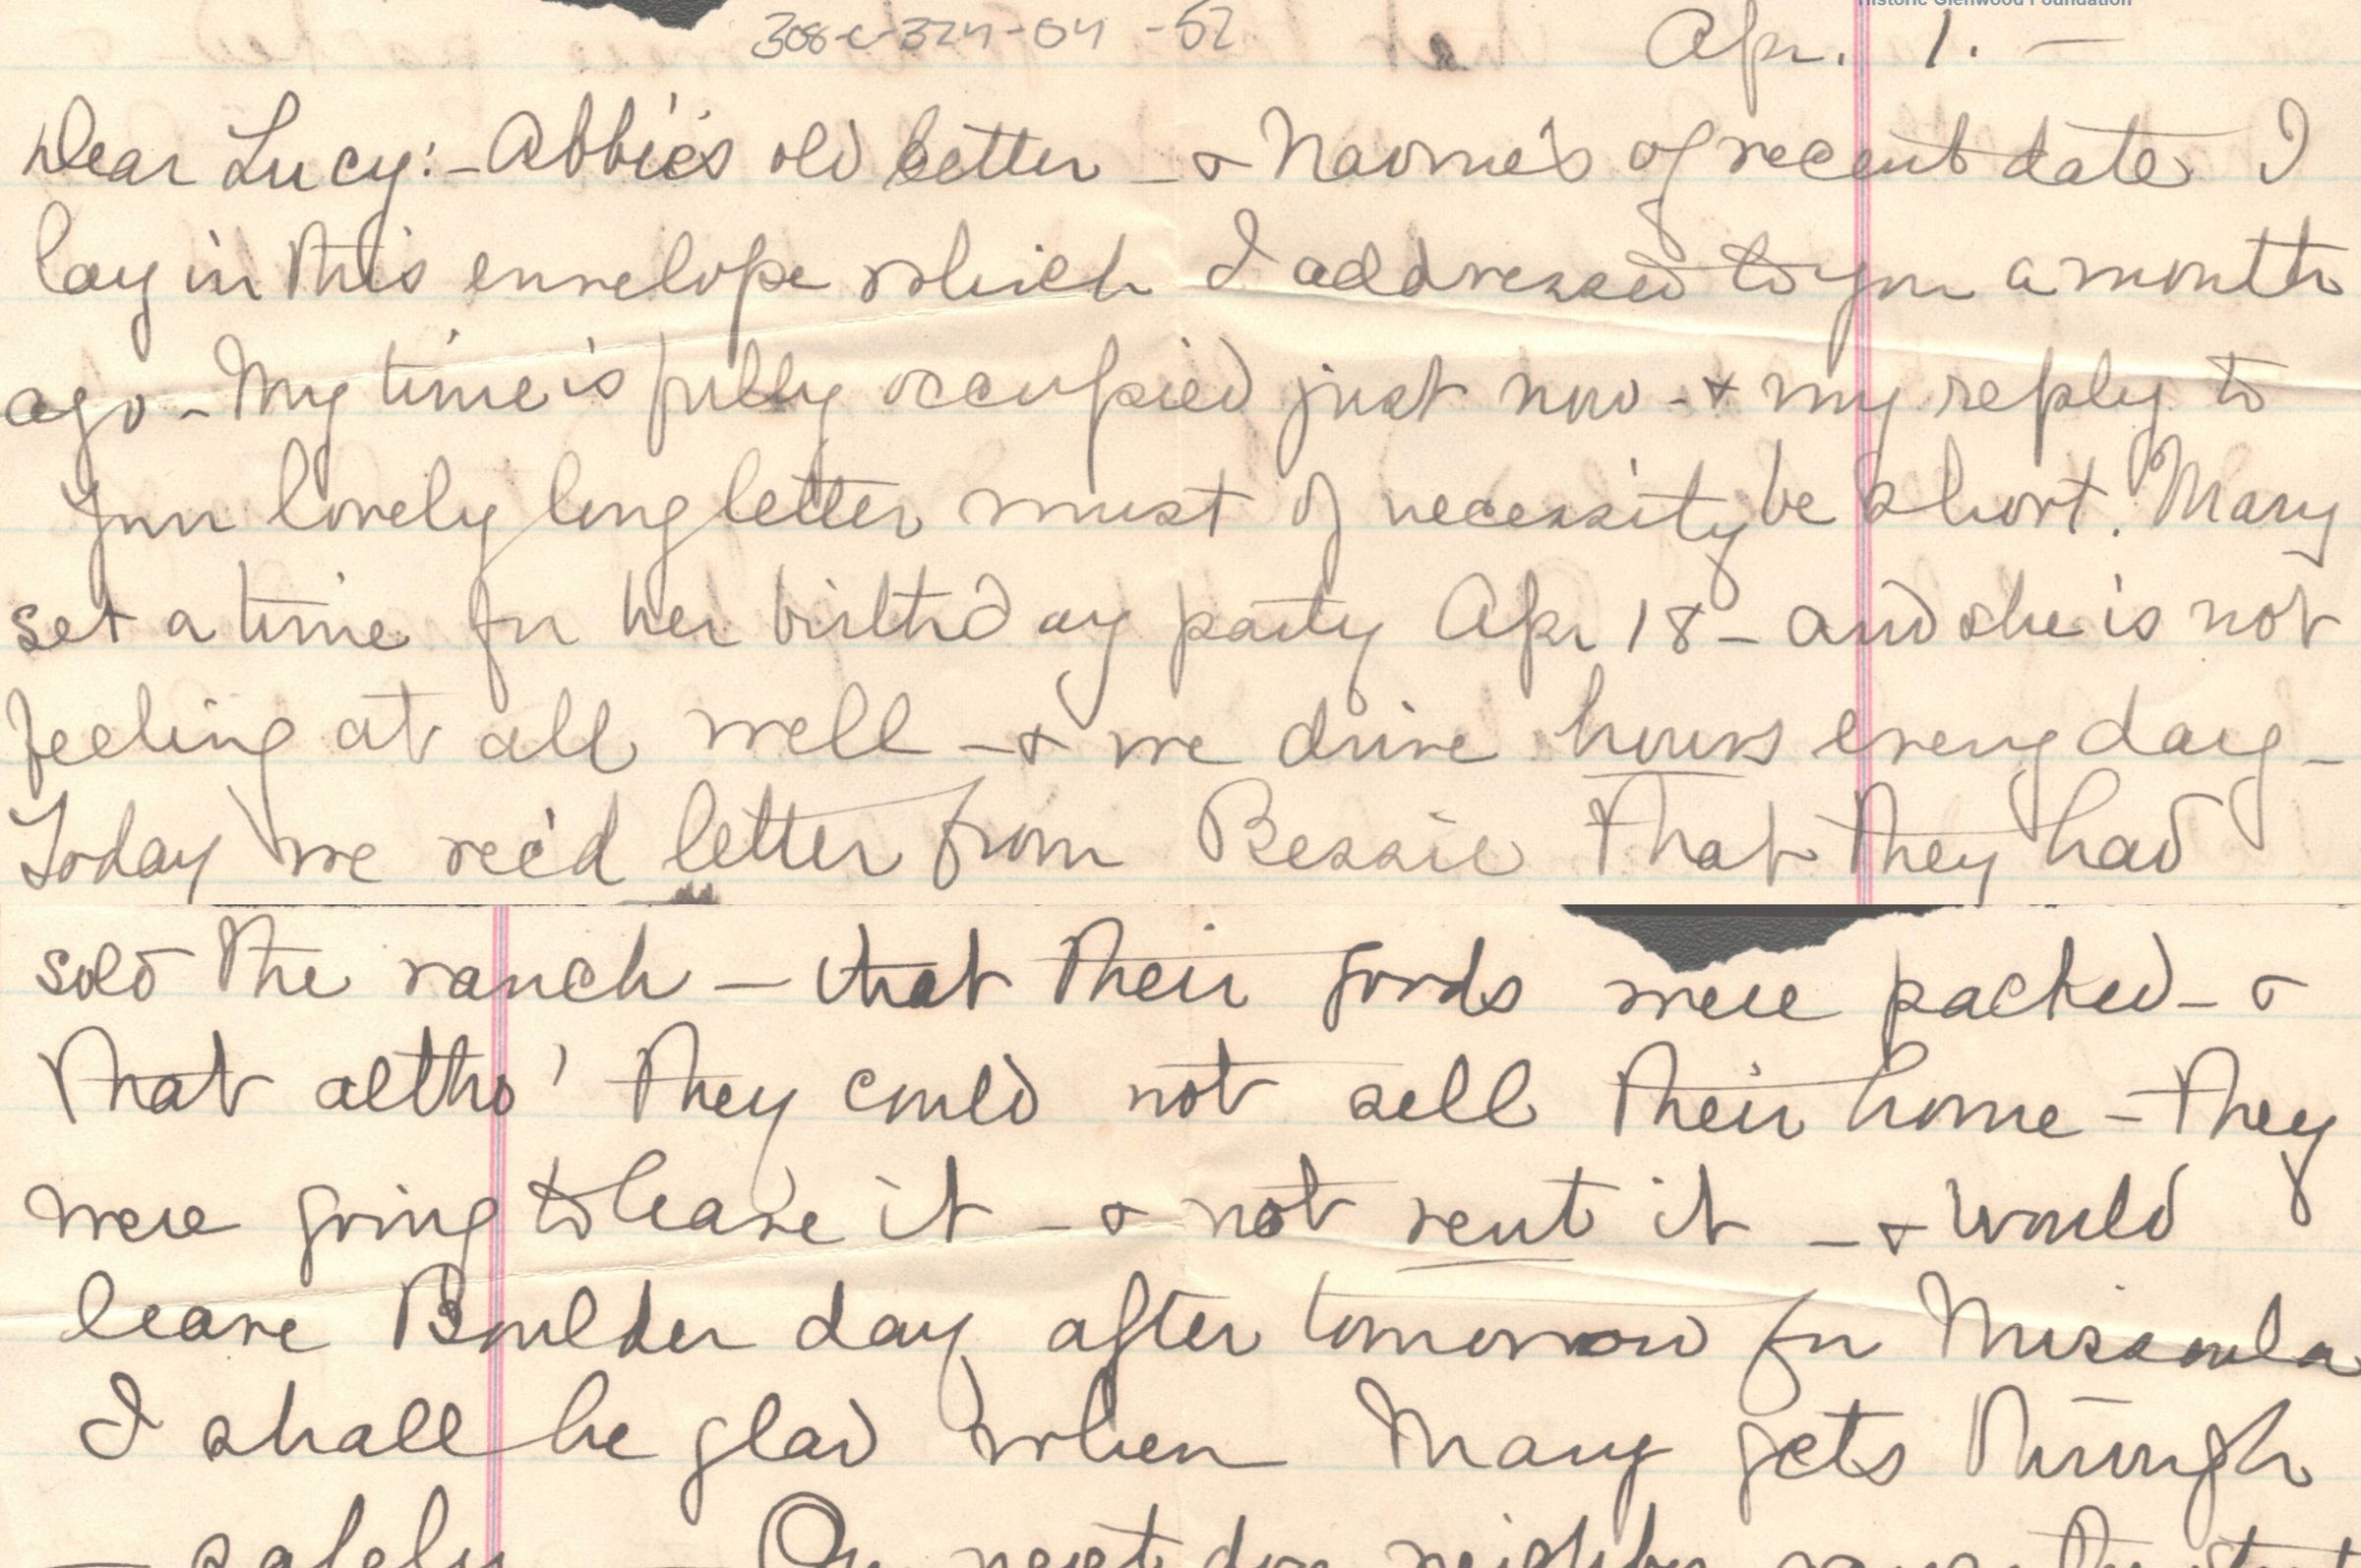 Historic Glenwood Foundation
308-c-324-04 -52
Apr. 1. —
Dear Lucy:- Abbie's old letter - & Naomi's of recent date I
lay in this envelope which I addressed to you a month
ago - My time is fully occupied just now - & my reply to
your lovely long letter must of necessity be short. Mary
set a time for her birthday party Apr 18 - and she is not
feeling at all well - & we drive hours every day -
Today we rec'd letter from Bessie that they had
sold the ranch - that their goods were packed - &
that altho' they could not sell their home - they
were going to leave it - & not rent it - & would
leave Boulder day after tomorrow for Missoula
I shall be glad when Mary gets through
- safely - Our next door neighbor